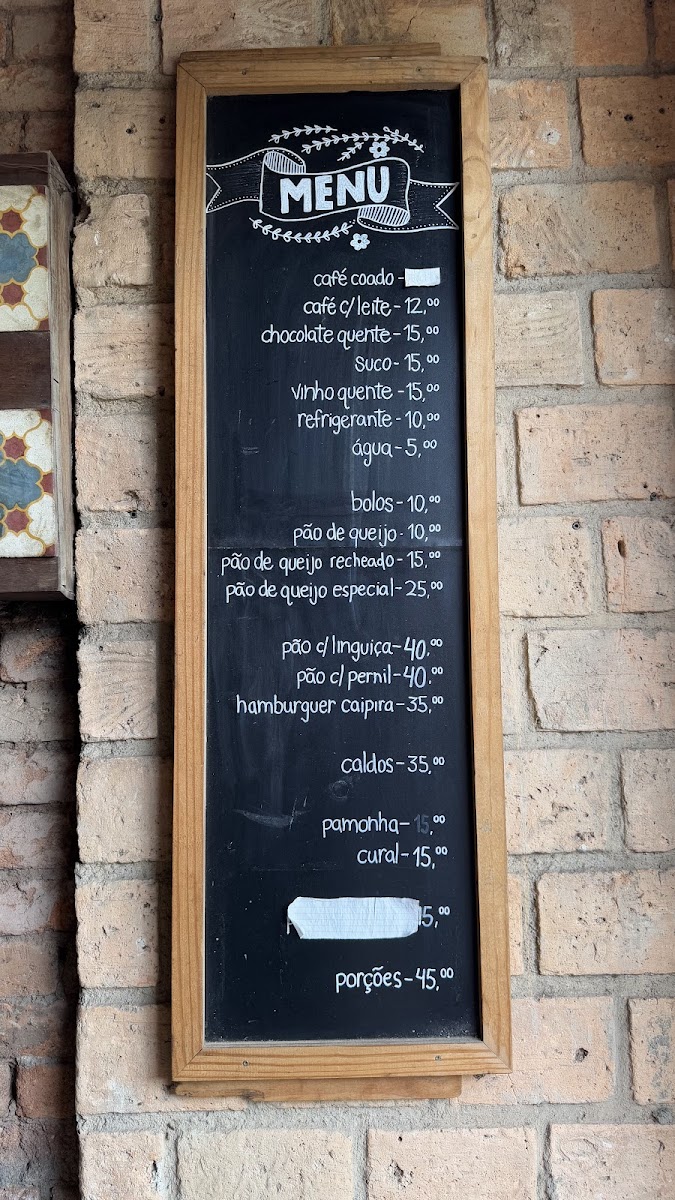 MENU
café coado -
café c/ leite - 12,00
chocolate quente - 15,00
suco - 15,00
vinho quente - 15,00
refrigerante - 10,00
água - 5,00
bolos - 10,00
pão de queijo - 10,00
pão de queijo recheado - 15,00
pão de queijo especial - 25,00
pão c/ linguiça - 40,00
pão c/ pernil - 40,00
hamburguer caipira - 35,00
caldos - 35,00
pamonha - 15,00
cural - 15,00
15,00
porções - 45,00